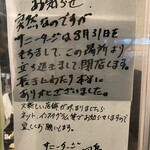 お知らせ。
突然なのですが
サニーターフは8月31日を
もちまして、この場所より
立ち退きまして閉店します。
長きにわたり本当に
ありがとうございました。
又新しい店舗が決まりましたら
ネット、インスタグラム等でお知らせしますので
宜しくお願いします。